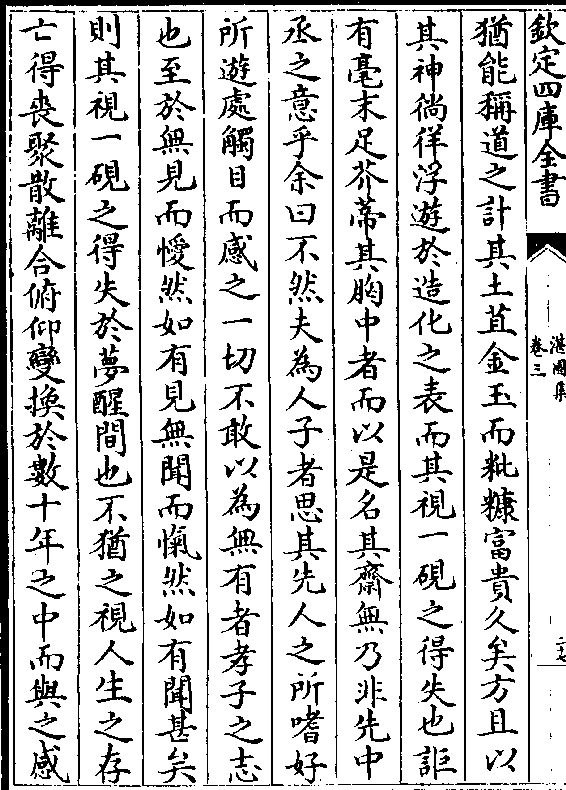 欽定四庫全書
湛園集
卷三
猶能稱道之計其土苴金玉而粃糠富貴久矣方且以
其神徜徉浮遊於造化之表而其視一硯之得失也詎
有毫末足芥蔕其胸中者而以是名其齋無乃非先中
丞之意乎余曰不然夫為人子者思其先人之所嗜好
所遊處觸目而感之一切不敢以為無有者孝子之志
也至於無見而僾然如有見無聞而愾然如有聞甚矣
則其視一硯之得失於夢醒間也不猶之視人生之存
亡得喪聚散離合俯仰變換於數十年之中而與之感